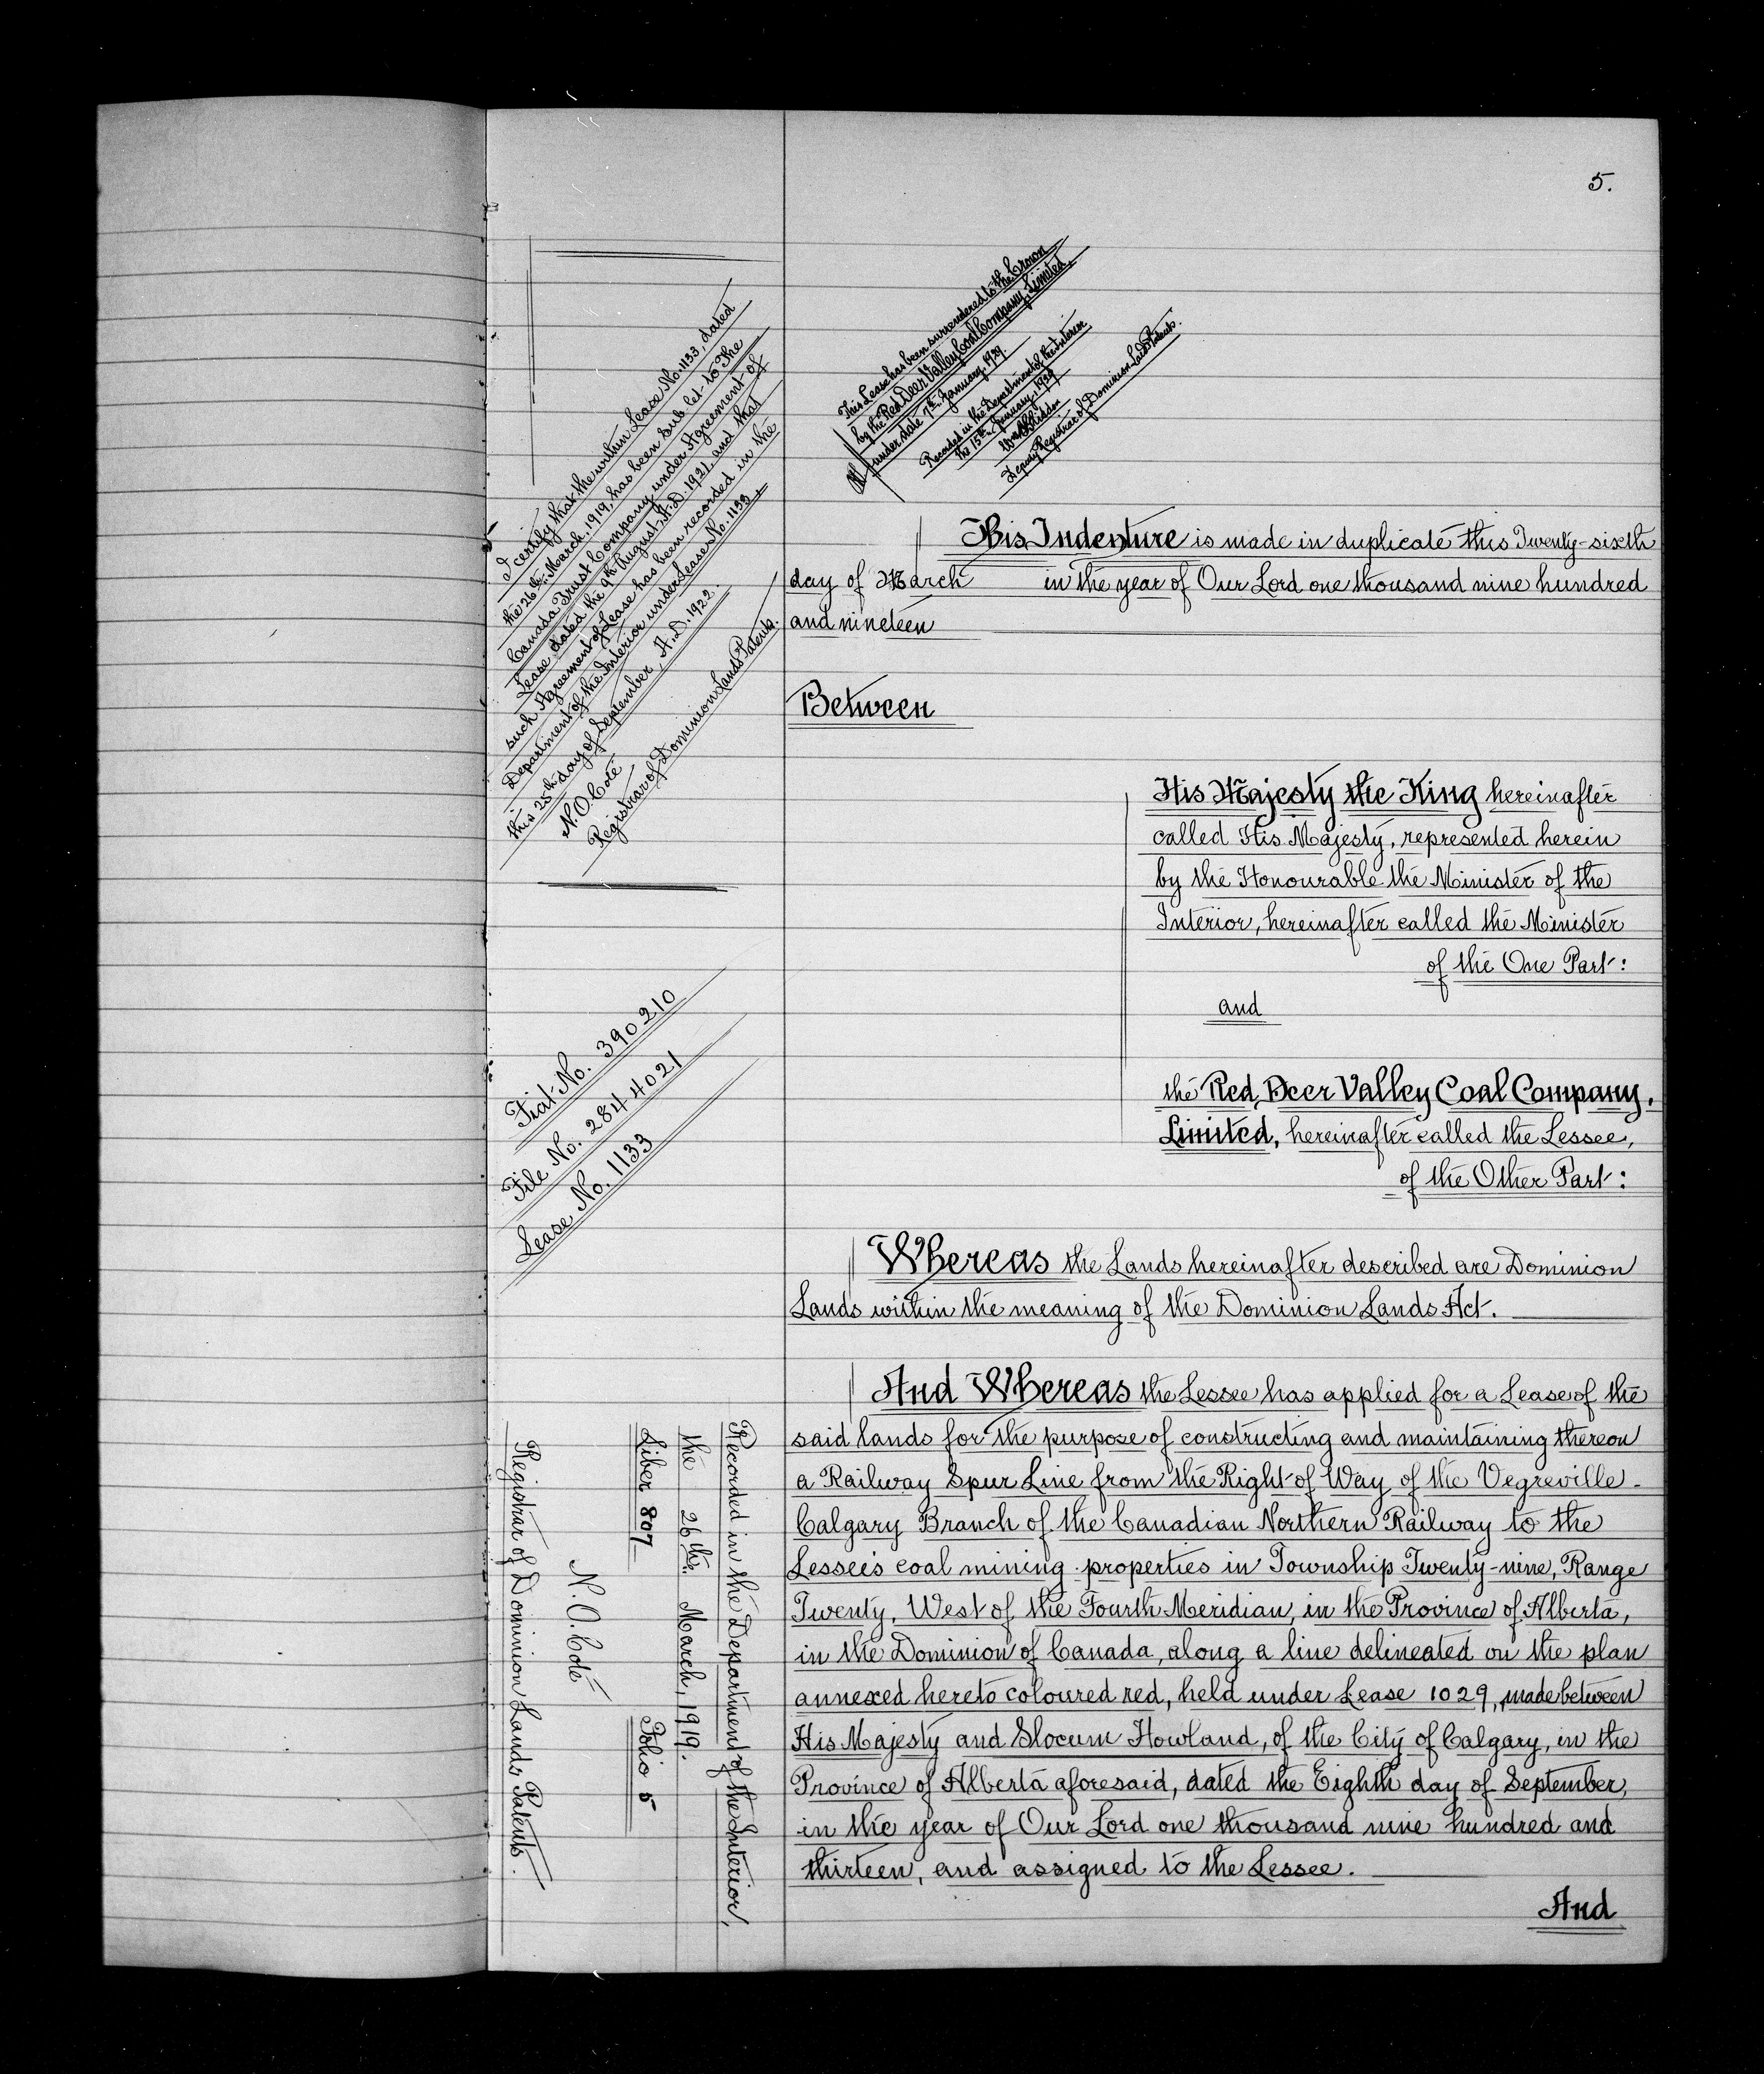 5.
This Lease has been surrendered to the Crown
by the Red Deer Valley Coal Company, Limited,
under date 7th January, 1929.
Recorded in the Department of the Interior
the 15th January, 1929
Deputy Registrar of Dominion Lands Patents.
I certify that the within Lease No. 1133, dated
the 26th March, 1919, has been sub let to The
Canada Trust Company under Agreement of
Lease dated the 9th August A.D. 1921, and that
such Agreement of Lease has been recorded in the
Department of the Interior under Lease No. 1133
this 25th day of September, A.D. 1922.
N. O. Coté
Registrar of Dominion Lands Patents.
Fiat No. 390210
File No. 2844021
Lease No. 1133
Recorded in the Department of the Interior,
the 26th March, 1919.
Liber 807 Folio 5
N. O. Coté
Registrar of Dominion Lands Patents.
This Indenture is made in duplicate this Twenty-sixth
day of March in the year of Our Lord one thousand nine hundred
and nineteen
Between
His Majesty the King hereinafter
called His Majesty, represented herein
by the Honourable the Minister of the
Interior, hereinafter called the Minister
of the One Part:
and
the Red Deer Valley Coal Company,
Limited, hereinafter called the Lessee,
of the Other Part:
Whereas the Lands hereinafter described are Dominion
Lands within the meaning of the Dominion Lands Act.
And Whereas the Lessee has applied for a Lease of the
said lands for the purpose of constructing and maintaining thereon
a Railway Spur Line from the Right of Way of the Vegreville-
Calgary Branch of the Canadian Northern Railway to the
Lessee's coal mining properties in Township Twenty-nine, Range
Twenty, West of the Fourth Meridian, in the Province of Alberta,
in the Dominion of Canada, along a line delineated on the plan
annexed hereto coloured red, held under Lease 1029, made between
His Majesty and Slocum Howland, of the City of Calgary, in the
Province of Alberta aforesaid, dated the Eighth day of September,
in the year of Our Lord one thousand nine hundred and
thirteen, and assigned to the Lessee.
And